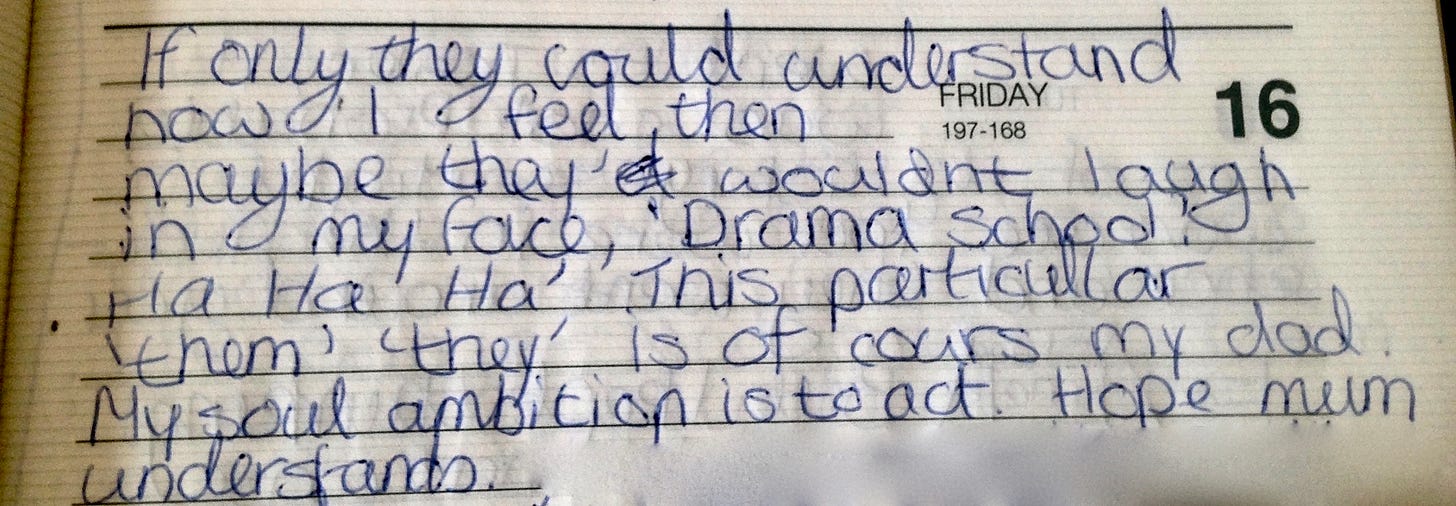 If only they could understand
FRIDAY 16
how I feel, then
197-168
maybe they'd wouldnt laugh
in my face, 'Drama school!
Ha Ha Ha' This particullar
'them' 'they' is of cours my dad.
My soul ambition is to act. Hope mum
understands.